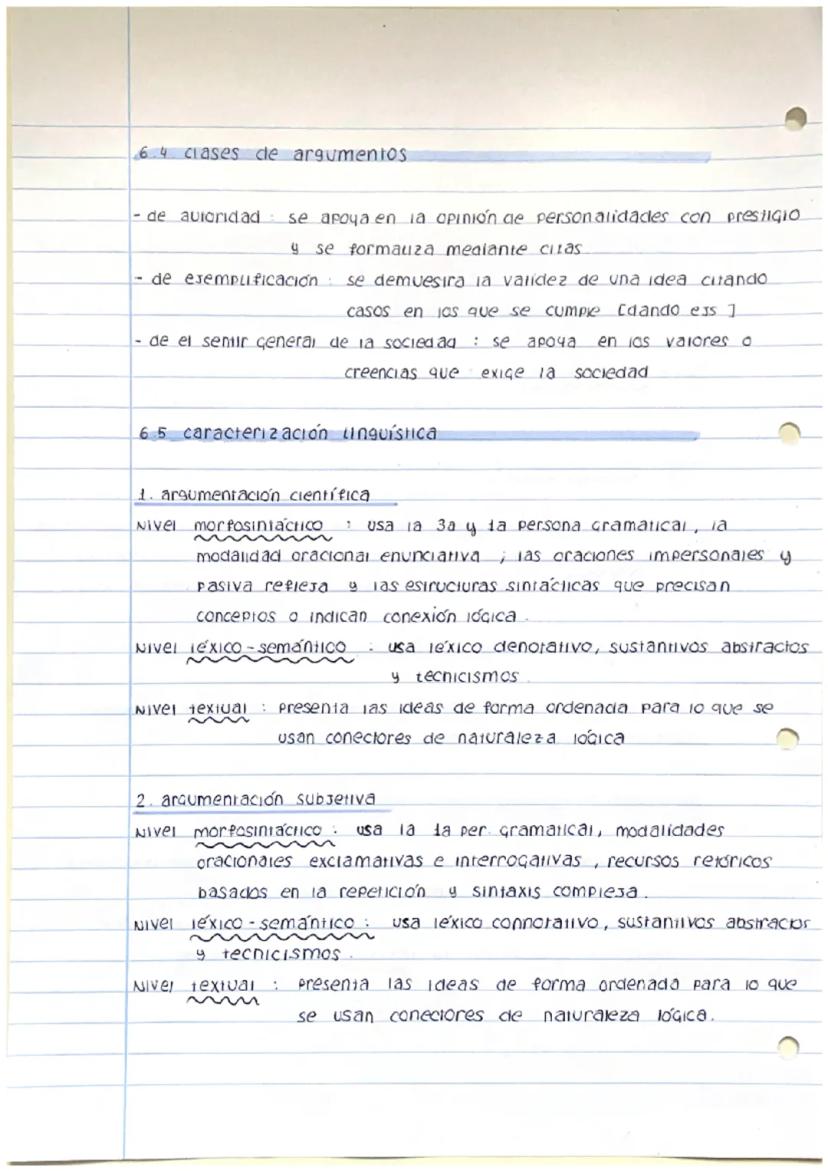 6.4 clases de argumentos
- de autoridad : se apoya en la opinión de personalidades con prestigio
y se formaliza mediante citas
- de ejemplificación : se demuestra la validez de una idea citando
casos en los que se cumple [dando ejs ]
- de el sentir general de la sociedad : se apoya en los valores o
creencias que exige la sociedad
6.5 caracterización lingüística
1. argumentación científica
Nivel morfosintáctico : usa la 3a y 1a persona gramatical, la
modalidad oracional enunciativa ; las oraciones impersonales y
pasiva refleja y las estructuras sintácticas que precisan
conceptos o indican conexión lógica.
Nivel léxico-semántico : usa léxico denotativo, sustantivos abstractos
y tecnicismos.
Nivel textual : presenta las ideas de forma ordenada para lo que se
usan conectores de naturaleza lógica
2. argumentación subjetiva
Nivel morfosintáctico : usa la 1a per. gramatical, modalidades
oracionales exclamativas e interrogativas , recursos retóricos
basados en la repetición y sintaxis compleja.
Nivel léxico-semántico : usa léxico connotativo, sustantivos abstractos
y tecnicismos.
Nivel textual : presenta las ideas de forma ordenada para lo que
se usan conectores de naturaleza lógica.